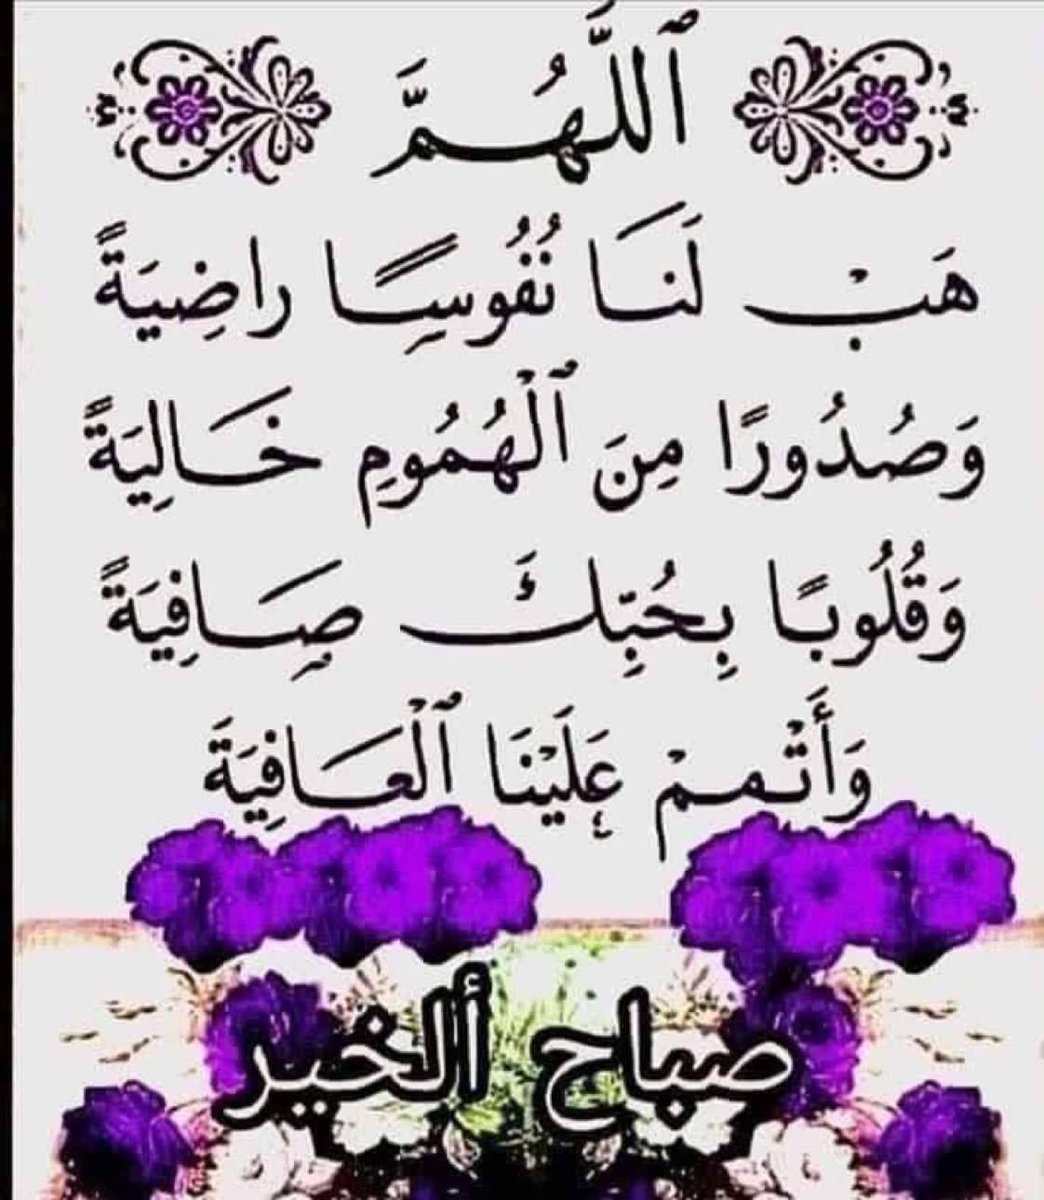 ٱللَّهُمَّ
هَبْ لَنَا نُفُوسًا رَاضِيَةً
وَصُدُورًا مِنَ ٱلْهُمُومِ خَالِيَةً
وَقُلُوبًا بِحُبِّكَ صَافِيَةً
وَأَتْمِمْ عَلَيْنَا ٱلْعَافِيَةَ
صباح ألخير